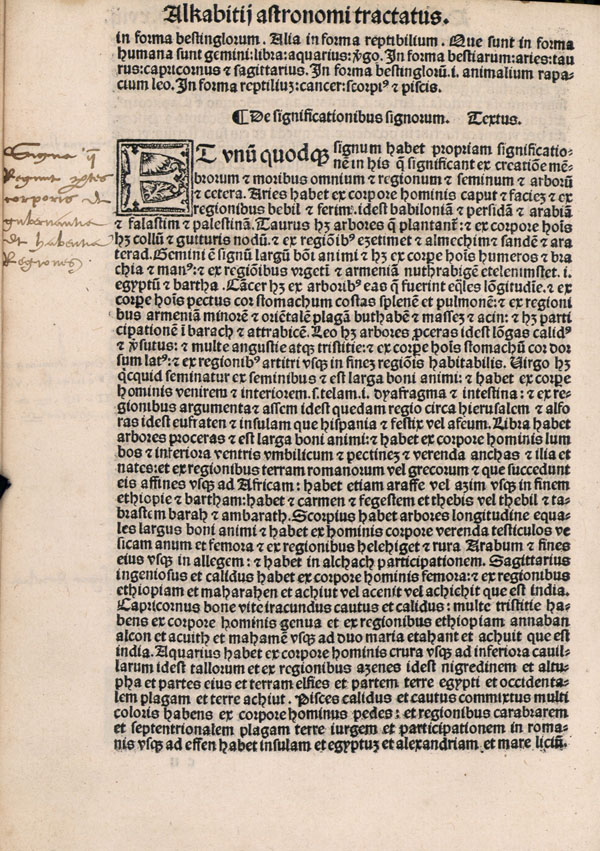 Alkabitij astronomi tractatus.
in forma bestinglorum. Alia in forma reptibilium. Que sunt in forma
humana sunt gemini:libra:aquarius:v̄go. In forma bestiarum:aries:tau
rus:capricornus ⁊ sagittarius. In forma bestinglorū.i. animalium rapa
cium leo. In forma reptiliuz:cancer:scorpiꝰ ⁊ piscis.
¶ De significationibus signorum. Textus.
ET vnū quodqꝫ signum habet propriam significatio-
nē in his q̄ significant ex creatiōe mē-
brorum ⁊ moribus omnium ⁊ regionum ⁊ seminum ⁊ arborū
⁊ cetera. Aries habet ex corpore hominis caput ⁊ faciez ⁊ ex
regionibus bebil ⁊ ferim. idest babiloniā ⁊ persidā ⁊ arabiā
⁊ falastim ⁊ palestinā. Taurus hꝫ arbores q̄ plantant᷑: ⁊ ex corpore hoīs
hꝫ collū ⁊ gutturis nodū. ⁊ ex regiōibꝰ ezetimet ⁊ almechim ⁊ sandē ⁊ ara
terad. Gemini ē signū largū bōni animi ⁊ hꝫ ex corpe hoīs humeros ⁊ bra
chia ⁊ manꝰ: ⁊ ex regiōibus vrgeti ⁊ armeniā nuthrabigē etelenimstet. i.
egyptū ⁊ bartha. Cācer hꝫ ex arboribꝰ eas q̄ fuerint eq̄les lōgitudīe. ⁊ ex
corpe hoīs pectus cor stomachum costas splenē et pulmonē: ⁊ ex regioni
bus armeniā minorē ⁊ oriētalē plagā buthabē ⁊ massez ⁊ acin: ⁊ hꝫ parti
cipationē ī barach ⁊ attrabicē. Leo hꝫ arbores p̄ceras idest lōgas calidꝰ
⁊ hꝫ ex corpe hoīs stomachū cor dor
sum latꝰ: ⁊ ex regionibꝰ artitri vsqꝫ in finez regiōis habitabilis. Uirgo hꝫ
q̄cquid seminatur ex seminibus ⁊ est larga boni animi: ⁊ habet ex corpe
hominis venirem ⁊ interiorem.s.telam.i. dyafragma ⁊ intestina: ⁊ ex re-
gionibus argumenta ⁊ assem idest quedam regio circa hierusalem ⁊ alfo
ras idest eufraten ⁊ insulam que hispania ⁊ festix vel afeum. Libra habet
arbores proceras ⁊ est larga boni animi: ⁊ habet ex corpore hominis lum
bos ⁊ inferiora ventris vmbilicum ⁊ pectinez ⁊ verenda anchas ⁊ ilia et
nates: et ex regionibus terram romanorum vel grecorum ⁊ que succedunt
eis affines vsqꝫ ad Africam: habet etiam araffe vel azim vsqꝫ in finem
ethiopie ⁊ bartham: habet ⁊ carmen ⁊ fegestem et thebis vel thebil ⁊ ta-
brastem barah ⁊ ambarath. Scorpius habet arbores longitudine equa-
les largus boni animi ⁊ habet ex hominis corpore verenda testiculos ve
sicam anum et femora ⁊ ex regionibus helehiget ⁊ rura Arabum ⁊ fines
eius vsqꝫ in allegem: ⁊ habet in alchach participationem. Sagittarius
ingeniosus et calidus habet ex corpore hominis femora: ⁊ ex regionibus
ethiopiam et maharahen et achiut vel acenit vel achichit que est india.
Capricornus bone vite iracundus cautus et calidus: multe tristitie ha-
bens ex corpore hominis genua et ex regionibus ethiopiam annaban
alcon et acuith et mahamē vsqꝫ ad duo maria etahant et achuit que est
india. Aquarius habet ex corpore hominis crura vsqꝫ ad inferiora cauil-
larum idest tallorum et ex regionibus azenes idest nigredinem et altu-
pha et partes eius et terram elfies et partem terre egypti et occidenta-
lem plagam et terre achiut. Pisces calidus et cautus commixtus multi
coloris habens ex corpore hominus pedes: et regionibus carabrarem
et septentrionalem plagam terre iurgem et participationem in roma-
nis vsqꝫ ad essen habet insulam et egyptuz et alexandriam et mare liciū.
Signa q̄
Regunt ptes
corporis de
gubernantia
et habentia
Regiones